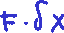 F. δx